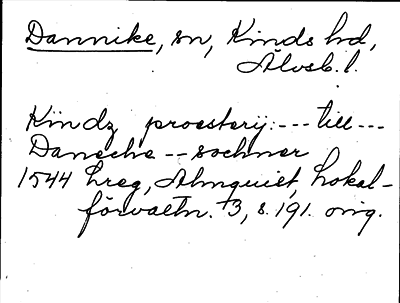 Dannike, sn, Kinds hd,
Älvsb. l.
Kindz prosterij: --- till ---
Daneche -- sochner
1544 hreg, Almquist, Lokal-
förvaltn. 3, s. 191. orig.